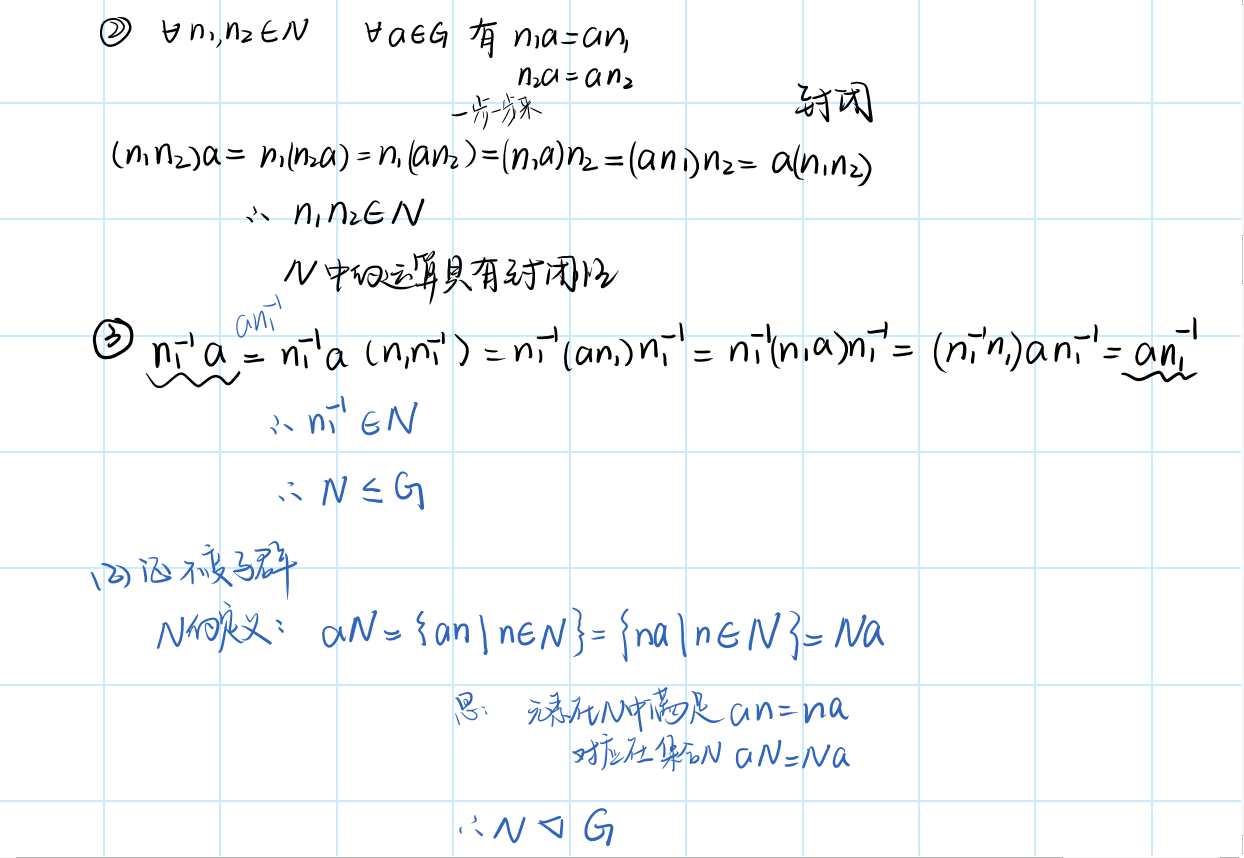 ② ∀n₁,n₂∈N ∀a∈G 有 n₁a=an₁
n₂a=an₂
一步一步来 封闭
(n₁n₂)a= n₁(n₂a)=n₁(an₂)=(n₁a)n₂=(an₁)n₂= a(n₁n₂)
∴ n₁n₂∈N
N中的运算具有封闭性
an₁⁻¹
③ n₁⁻¹a = n₁⁻¹a (n₁n₁⁻¹) = n₁⁻¹(an₁)n₁⁻¹ = n₁⁻¹(n₁a)n₁⁻¹ = (n₁⁻¹n₁)an₁⁻¹ = an₁⁻¹
∴ n₁⁻¹ ∈N
∴ N ≤ G
(2) 证不变子群
N的定义: aN={an|n∈N}={na|n∈N}=Na
思: 元素在N中满足 an=na
对应在集合N aN=Na
∴N ⊲ G